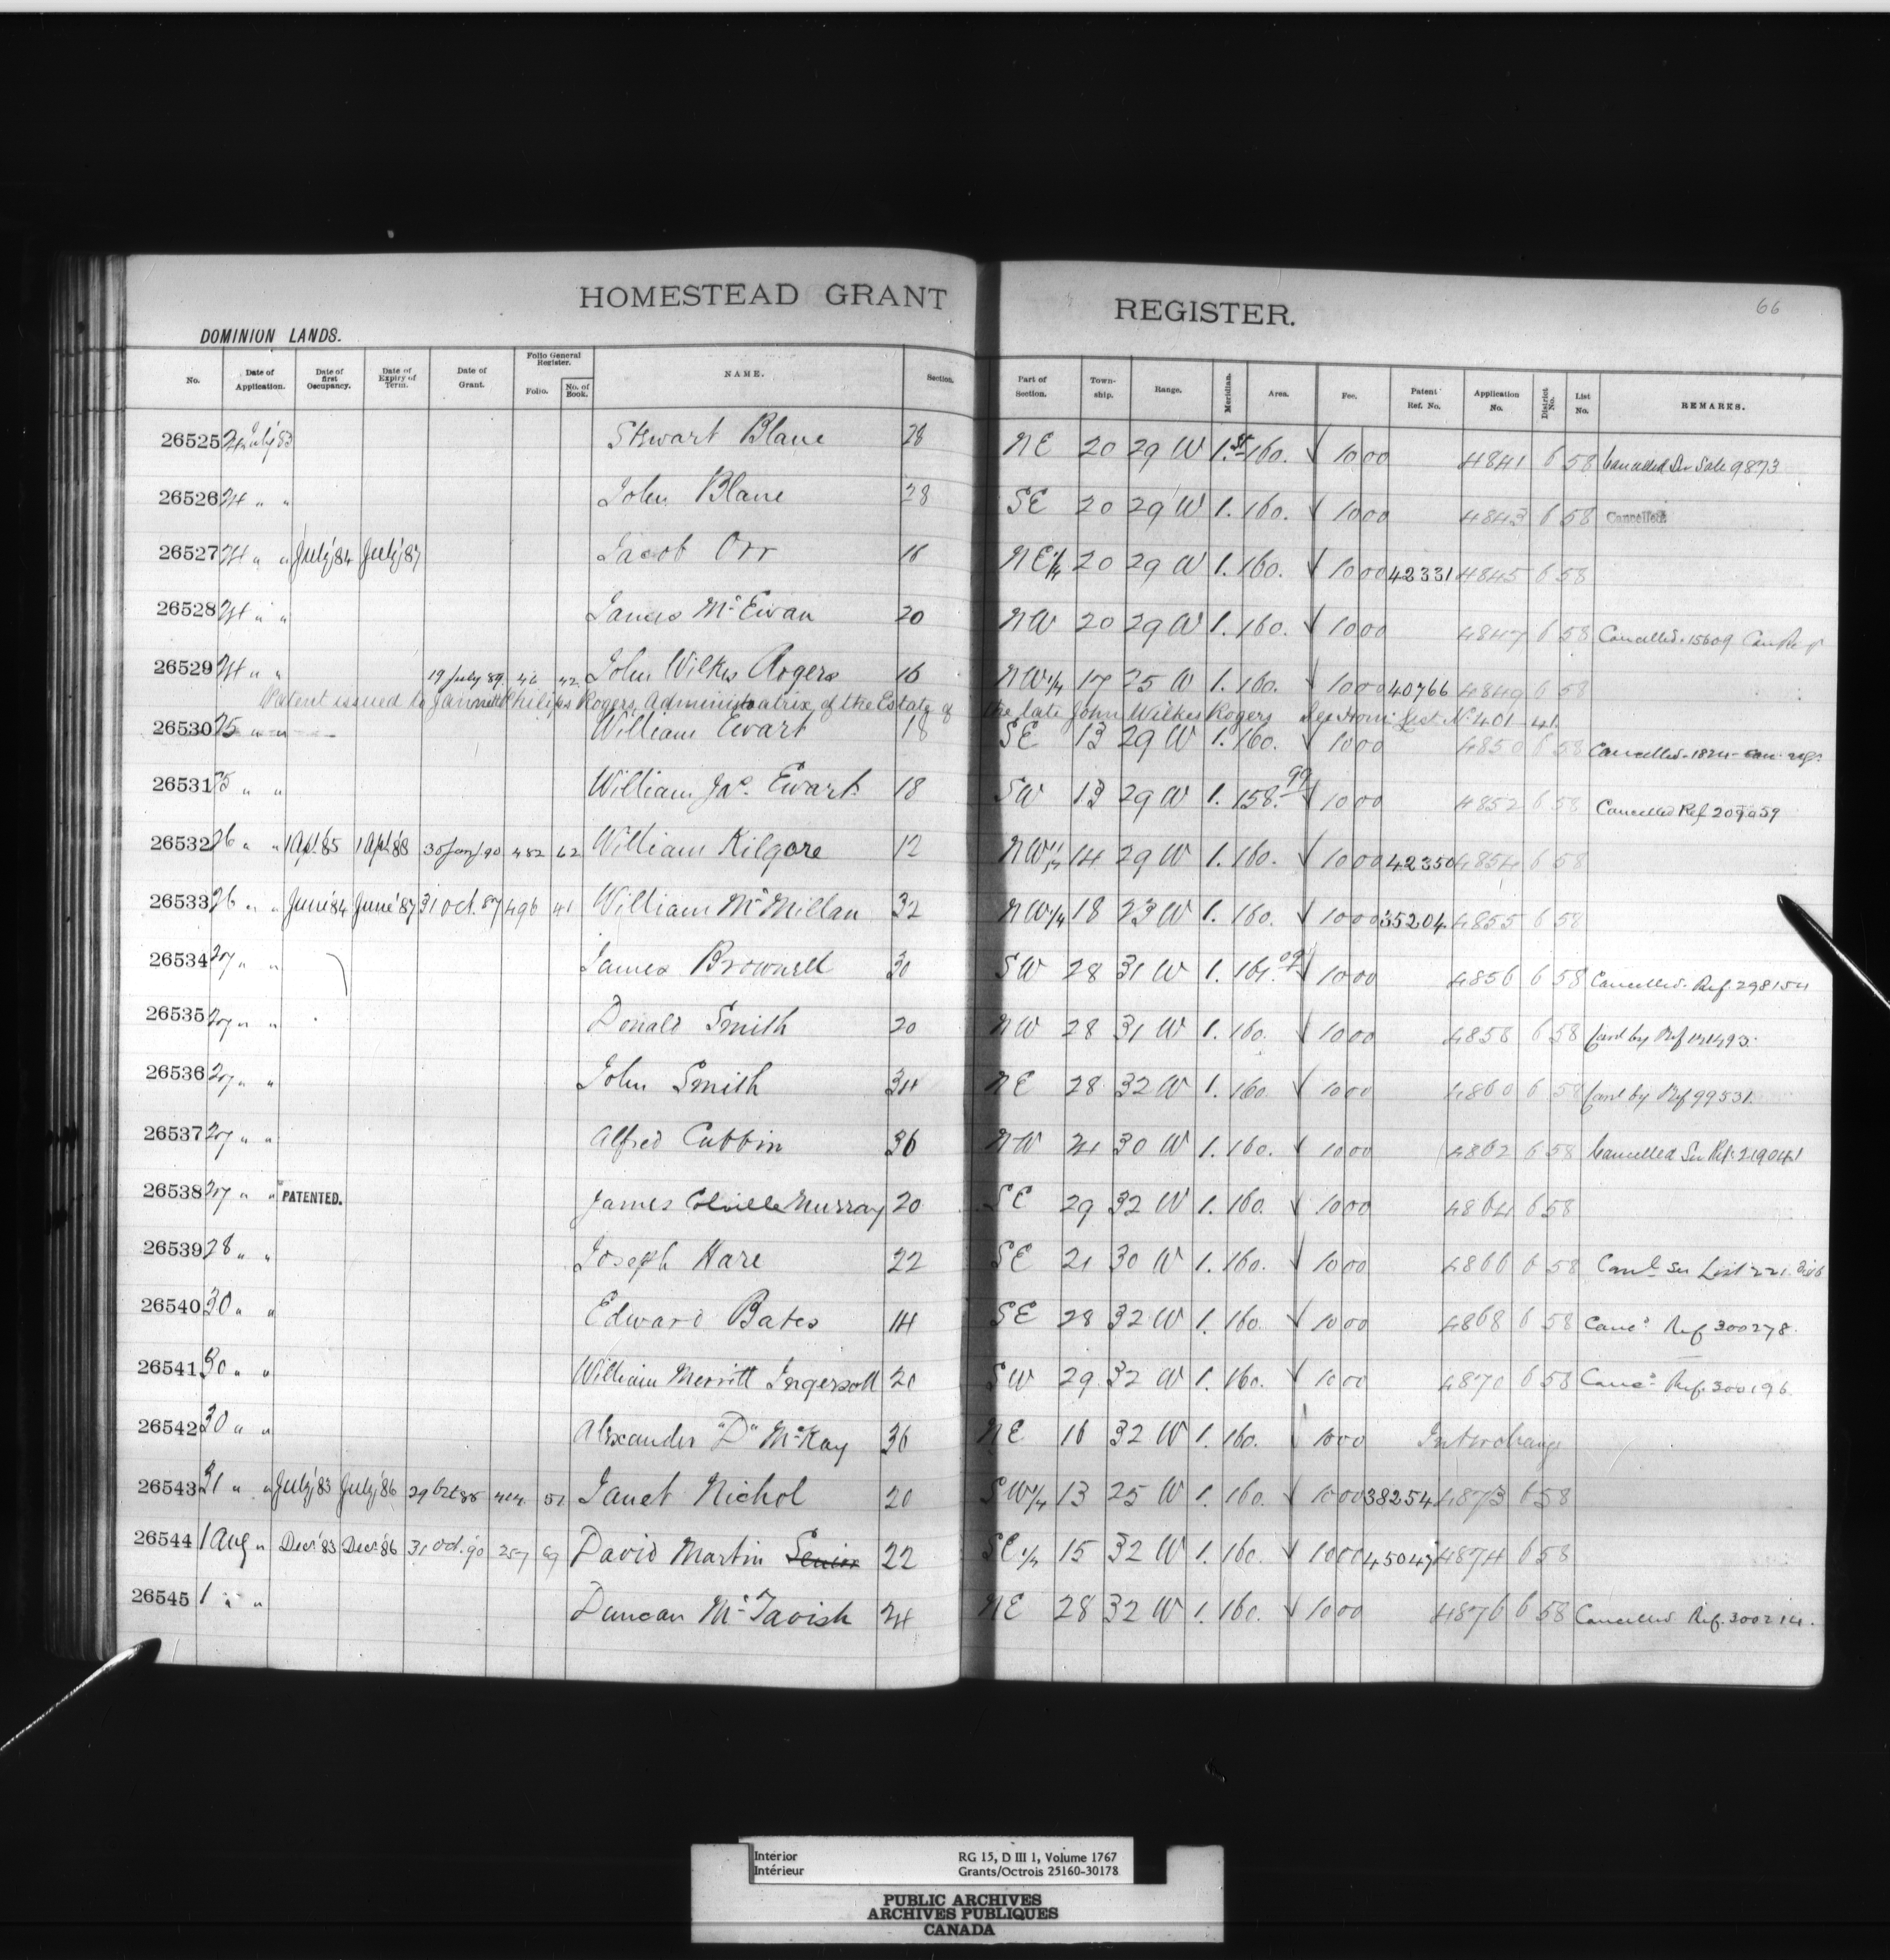 66
HOMESTEAD GRANT REGISTER.
DOMINION LANDS.
No. Date of Application. Date of first Occupancy. Date of Expiry of Term. Date of Grant. Folio General Register. Folio. No. of Book. NAME. Section. Part of Section. Township. Range. Meridian. Area. Fee. Patent Ref. No. Application No. District No. List No. REMARKS.
26525 24 July '83 Stewart Blane 28 NE 20 29 W 1.st 160. 10 00 4841 6 58 Cancelled Sale 9873
26526 24 " " John Blane 28 SE 20 29 W 1. 160. 10 00 4843 6 58 Cancelled.
26527 24 " " July '84 July '87 Jacob Orr 16 NE 1/4 20 29 W 1. 160. 10 00 42331 4845 6 58
26528 24 " " James McEwan 20 NW 20 29 W 1. 160. 10 00 4847 6 58 Cancelled. 15609
26529 24 " " 19 July 89 42 John Wilkes Rogers 16 NW 1/4 17 25 W 1. 160. 10 00 40766 4849 6 58
Patent issued to Philips Rogers, Administratrix of the Estate of the late John Wilkes Rogers No. 401-41.
26530 25 " " William Ewart 18 SE 13 29 W 1. 160. 10 00 4850 6 58 Cancelled
26531 25 " " William Jas. Ewart 18 SW 13 29 W 1. 158.99 10 00 4852 6 58 Cancelled Ref 209059
26532 26 " " 1 Apl. 85 1 Apl. 88 30 Jany 90 482 62 William Kilgore 12 NW 1/4 14 29 W 1. 160. 10 00 42350 4854 6 58
26533 26 " " June '84 June '87 31 Oct. 87 496 41 William McMillan 32 NW 1/4 18 23 W 1. 160. 10 00 35204 4855 6 58
26534 27 " " James Brownell 30 SW 28 31 W 1. 161. 10 00 4856 6 58 Cancelled. Ref. 298154
26535 27 " " Donald Smith 20 NW 28 31 W 1. 160. 10 00 4858 6 58 Cand by Ref
26536 27 " " John Smith 34 NE 28 32 W 1. 160 10 00 4860 6 58 Cand by Ref 99531.
26537 27 " " Alfred Cubbin 36 NW 21 30 W 1. 160. 10 00 4862 6 58 Cancelled See Ref. 219041
26538 27 " " PATENTED. James Colville Murray 20 SE 29 32 W 1. 160. 10 00 4864 6 58
26539 28 " " Joseph Hare 22 SE 21 30 W 1. 160. 10 00 4866 6 58 Cancd See List 221.
26540 30 " " Edward Bates 14 SE 28 32 W 1. 160. 10 00 4868 6 58 Cancd Ref 300278.
26541 30 " " William Merritt Ingersoll 20 SW 29 32 W 1. 160. 10 00 4870 6 58 Cancd Ref. 300196.
26542 30 " " Alexander "D" McKay 36 NE 16 32 W 1. 160. 10 00 Interchange
26543 31 " " July '83 July '86 29 Oct 88 51 Janet Nichol 20 SW 1/4 13 25 W 1. 160. 10 00 38254 4873 6 58
26544 1 Aug " Decr. 83 Decr. 86 31 Oct. 90 257 69 David Martin Senior 22 SE 1/4 15 32 W 1. 160. 10 00 45047 4874 6 58
26545 1 " " Duncan McTavish 24 NE 28 32 W 1. 160. 10 00 4876 6 58 Cancelled Ref. 300214.
Interior RG 15, D III 1, Volume 1767
Intérieur Grants/Octrois 25160-30178
PUBLIC ARCHIVES
ARCHIVES PUBLIQUES
CANADA